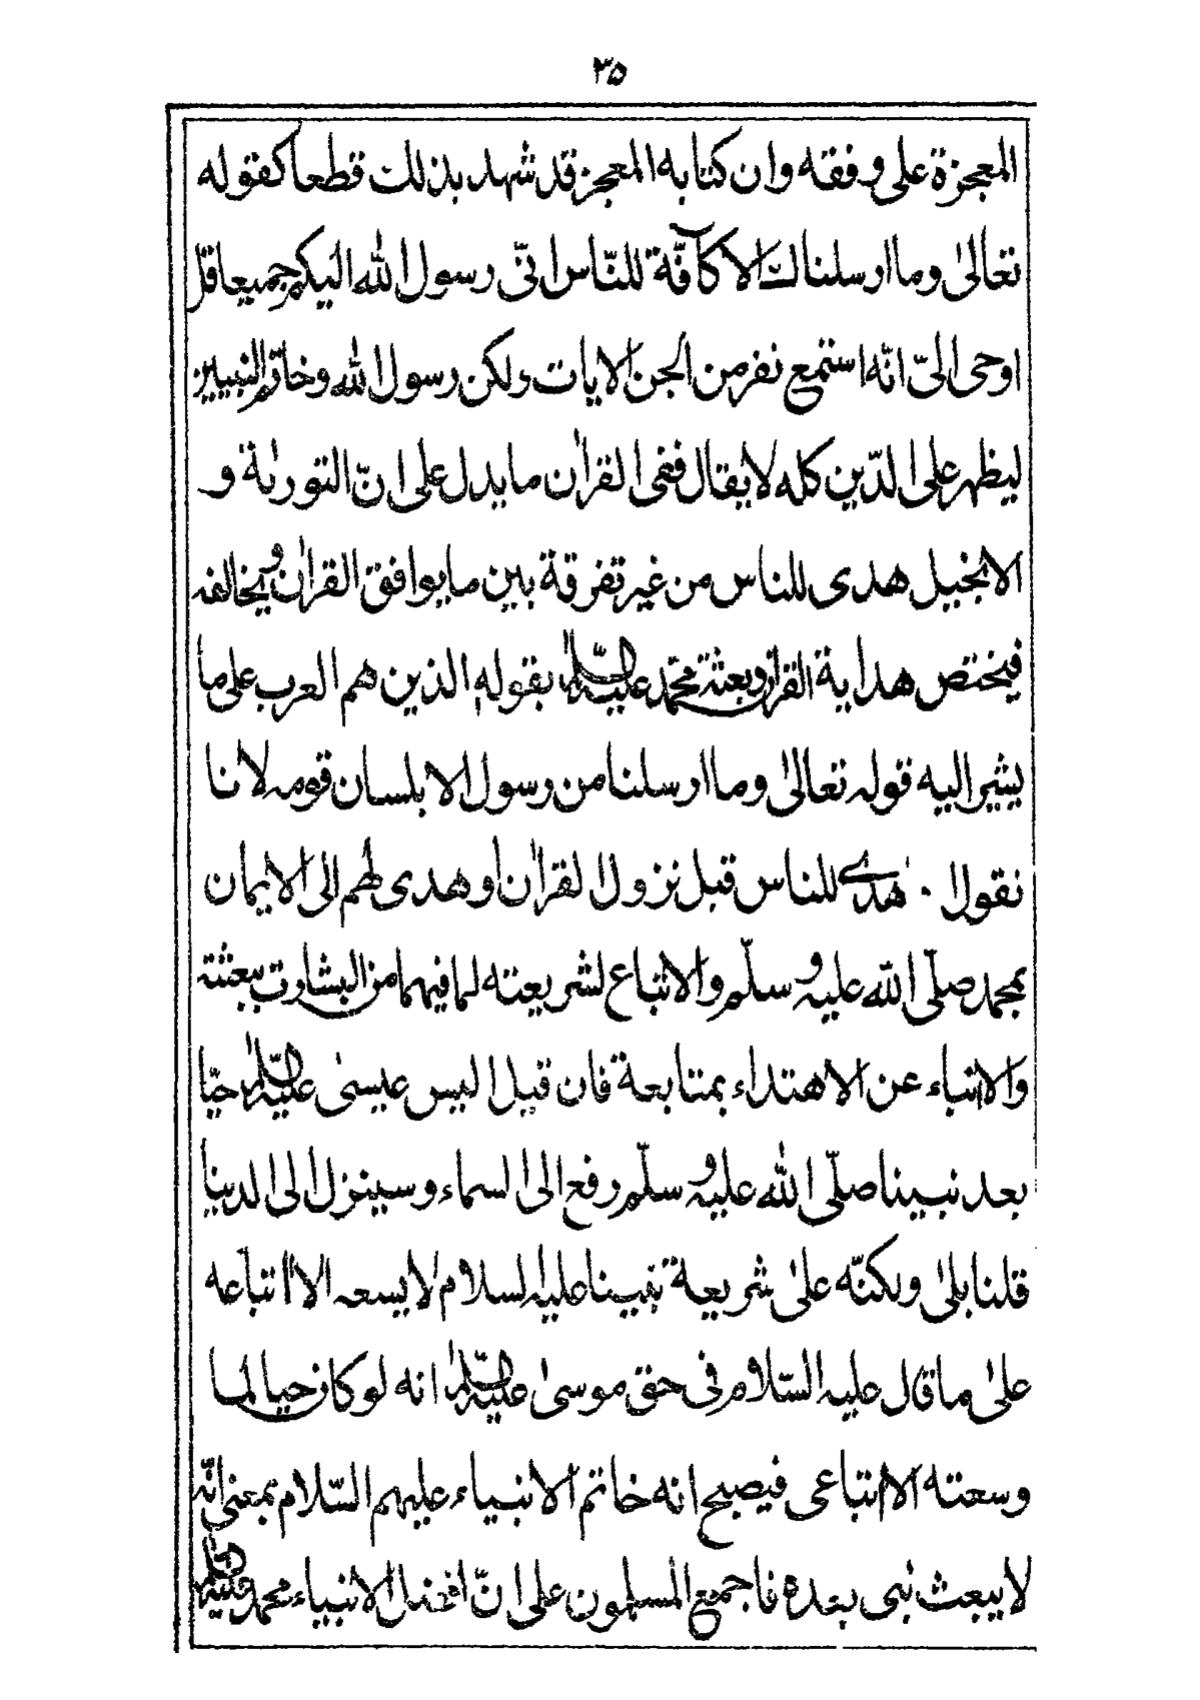 ٣٥
المعجزة على وفقه وان كتابه المعجز قد شهد بذلك قطعا كقوله
تعالىٰ وما ارسلناك الا كآفّة للنّاس انّى رسول الله اليكم جميعا قل
اوحى الىّ انّه استمع نفر من الجن الايات ولكن رسول الله وخاتم النبيين
ليظهر على الدّين كله لا يقال ففى القراٰن ما يدل على انّ التورٰىة و
الانجيل هدى للناس من غير تفرقة بين ما يوافق القراٰن ويخالفه
فيختص هداية القراٰن وبعثة محمّد عليه السّلام بقوله الذين هم العرب على ما
يشير اليه قوله تعالىٰ وما ارسلنا من رسول الا بلسان قومه لانا
نقول · هُدى للناس قبل نزول القراٰن او هدى لهم الى الايمان
بمحمد صلّى الله عليه و سلّم والاتباع لشريعته لما فيهما من البشارت ببعثته
والانباء عن الاهتداء بمتابعة فان قيل اليس عيسىٰ عليه السّلام حيّا
بعد نبينا صلّى الله عليه و سلّم رفع الى السماء وسينزل الى الدنيا
قلنا بلىٰ ولكنّه علىٰ شريعة نبينا عليه السلام لا يسعه الا اتباعه
علىٰ ما قال عليه السّلام فى حق موسىٰ عليه السّلام انه لو كان حيا لما
وسعته الا اتباعى فيصح انه خاتم الانبياء عليهم السّلام بمعنى انّه
لا يبعث نبى بعده فاجمع المسلمون على انّ افضل الانبياء محمد عليه السّلام